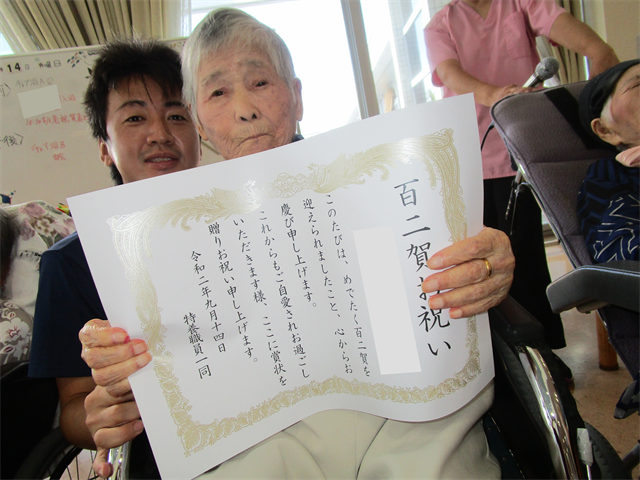 百二賀お祝い
このたびは、めでたく百二賀を
迎えられましたこと、心からお
慶び申し上げます。
これからもご自愛されお過ごし
いただきます様、ここに賞状を
贈りお祝い申し上げます。
令和二年九月十四日
特養職員一同
14日